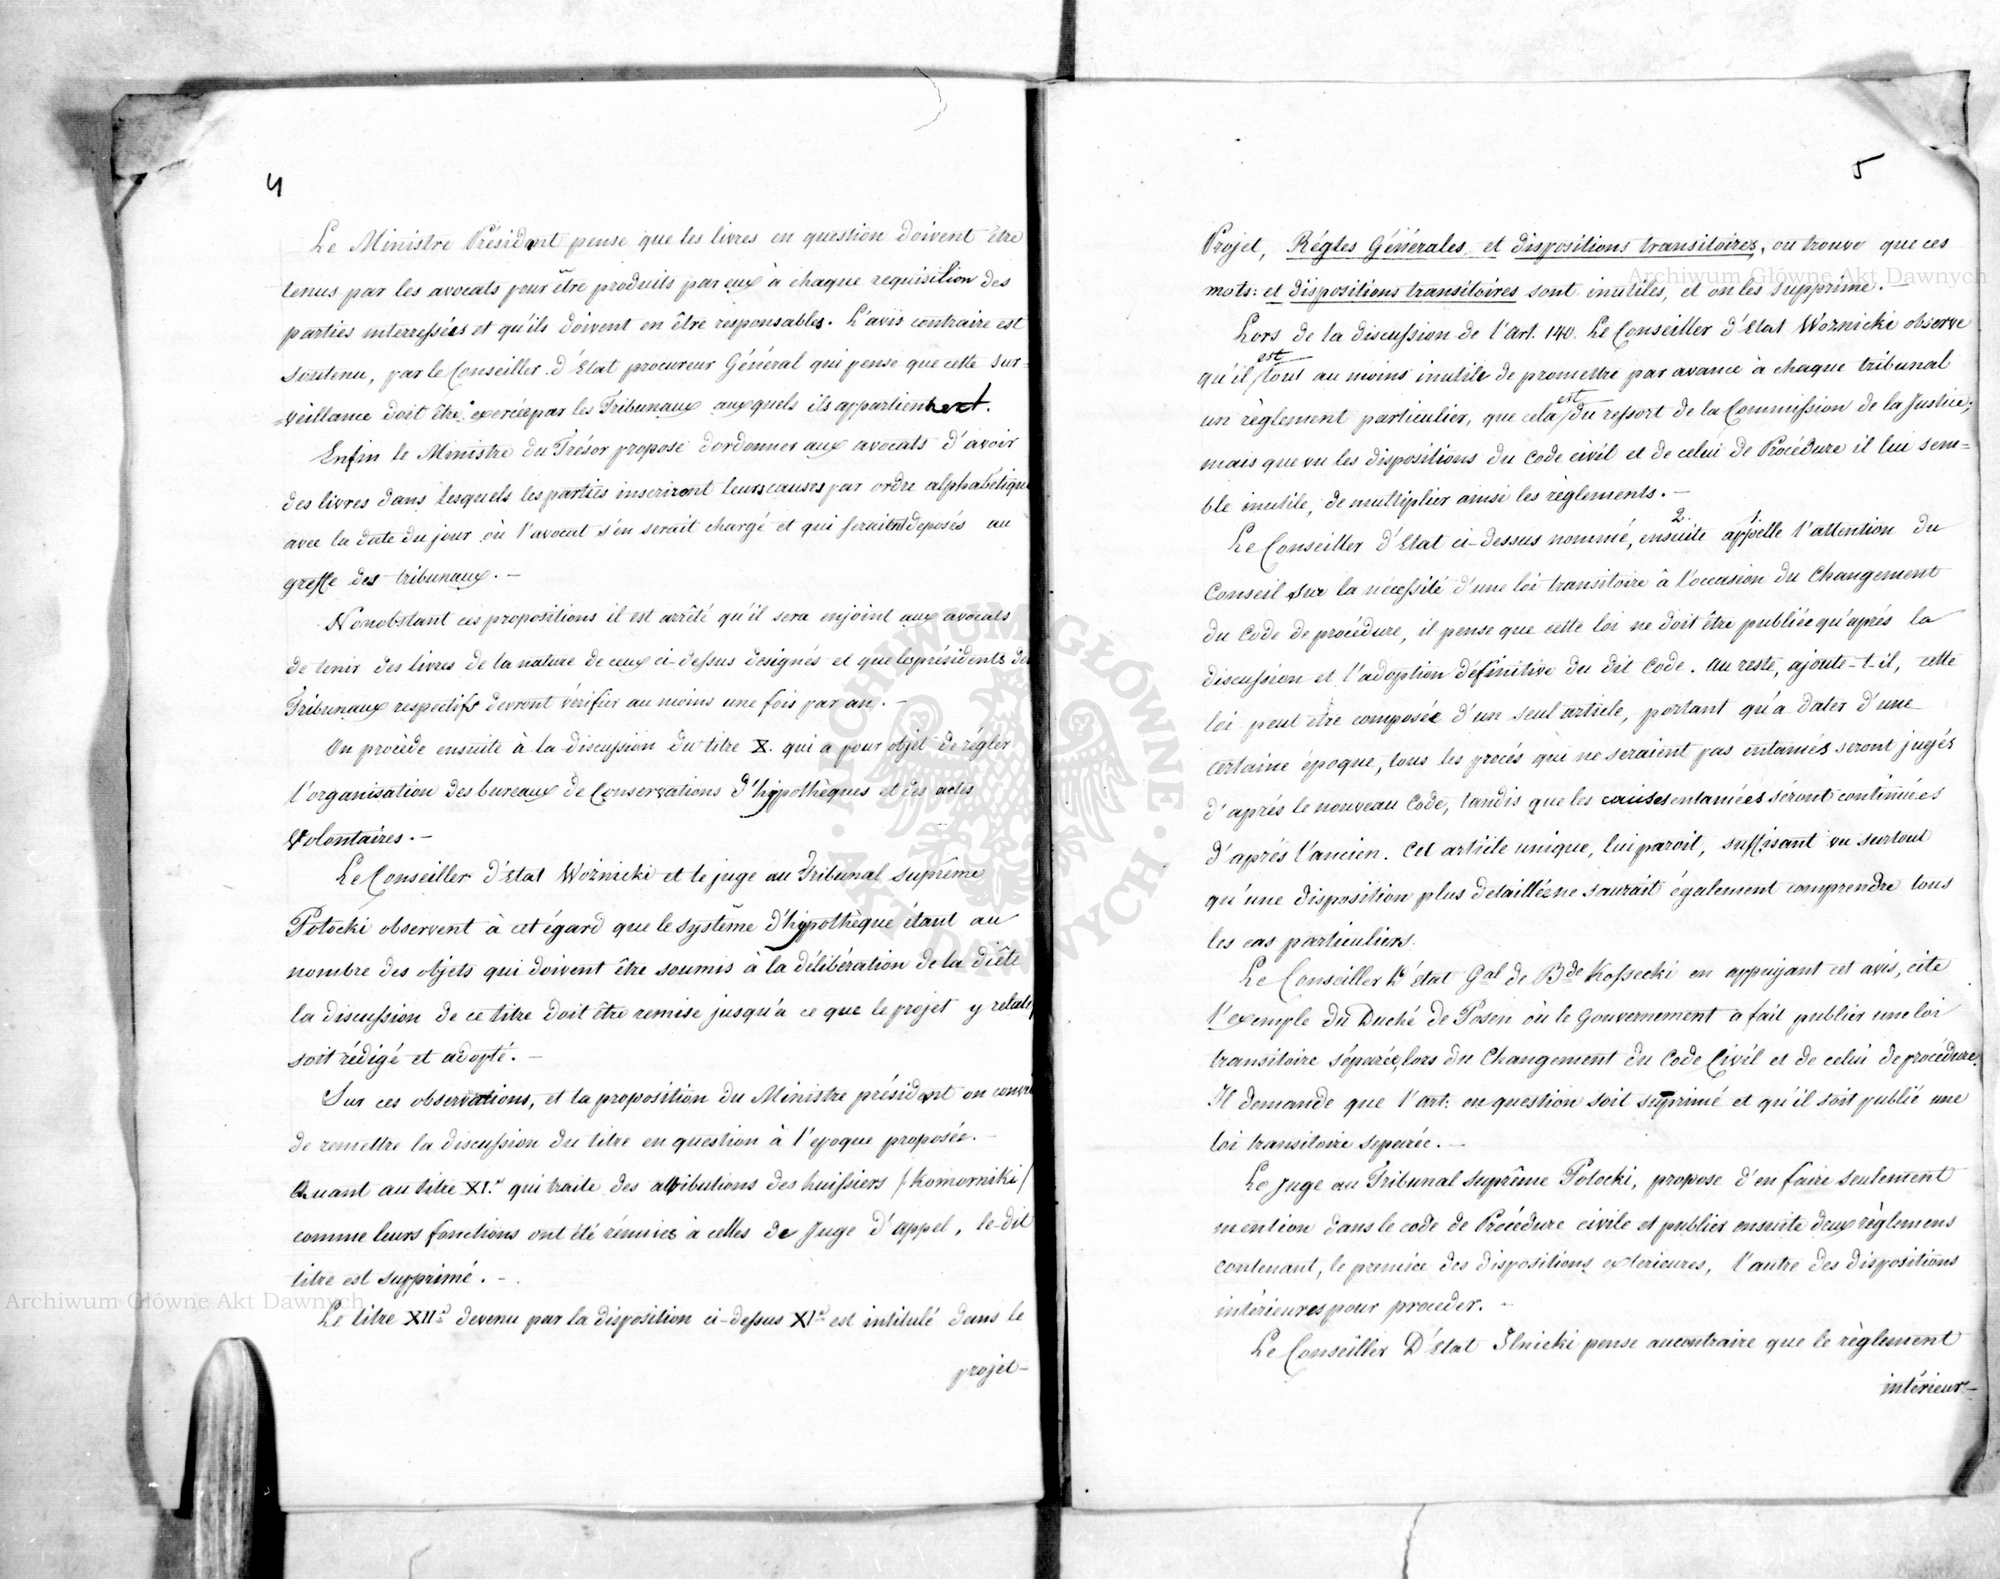 4
Le Ministre Président pense que les livres en question doivent être
tenus par les avocats pour être produits par eux à chaque requisition des
parties interressées et qu'ils doivent en être responsables. L'avis contraire est
soutenu, par le Conseiller d'Etat procureur Général qui pense que cette sur-
-veillance doit être exercée par les Tribunaux auxquels ils appartiennent.
Enfin le Ministre du Trésor propose d'ordonner aux avocats d'avoir
des livres dans lesquels les parties inscriront leurs causes par ordre alphabétique
avec la date du jour où l'avocat s'en serait chargé et qui seraient deposés au
greffe des tribunaux. —
Nonobstant ces propositions il est arrêté qu'il sera enjoint aux avocats
de tenir des livres de la nature de ceux ci-dessus designés et que les présidents des
Tribunaux respectifs devront vérifier au moins une fois par an. —
On procède ensuite à la discussion du titre X. qui a pour objet de régler
l'organisation des bureaux de Conservations d'hypothèques et des actes
Volontaires. —
Le Conseiller d'Etat Woźnicki et le juge au Tribunal suprême
Potocki observent à cet égard que le système d'hypothèque étant au
nombre des objets qui doivent être soumis à la délibération de la diète
la discussion de ce titre doit être remise jusqu'à ce que le projet y relatif
soit rédigé et adopté. —
Sur ces observations, et la proposition du Ministre président on convi
de remettre la discussion du titre en question à l'epoque proposée. —
Quant au titre XI.e qui traite des attributions des huissiers /Komorniki/
comme leurs fonctions ont été réunies à celles de Juge d'appel, le-dit
titre est supprimé. —
Le titre XII.e devenu par la disposition ci-dessus XI.e est intitulé dans le
projet —
5
Projet, Régles Générales et dispositions transitoires, on trouve que ces
mots: et dispositions transitoires sont inutiles, et on les supprime. —
Lors de la discussion de l'art. 140. Le Conseiller d'Etat Woźnicki observe
est
qu'il tout au moins inutile de promettre par avance à chaque tribunal
est
un règlement particulier, que cela du ressort de la Commission de la Justice;
mais que vu les dispositions du Code civil et de celui de Procédure il lui sem-
ble inutile, de multiplier ainsi les règlements. —
2. 1.
Le Conseiller d'Etat ci-dessus nommé, ensuite appelle l'attention du
Conseil sur la nécessité d'une loi transitoire à l'occasion du Changement
du Code de procédure, il pense que cette loi ne doit être publiée qu'après la
discussion et l'adoption définitive du dit Code. Au reste, ajoute-t-il, cette
loi peut être composée d'un seul article, portant qu'à dater d'une
certaine époque, tous les procés qui ne seraient pas entamés seront jugés
d'aprés le nouveau Code, tandis que les causes entamées seront continuées
d'après l'ancien. Cet article unique, lui paroit, suffisant vu surtout
qu'une disposition plus detaillée ne saurait également comprendre tous
les cas particuliers.
Le Conseiller d'état Gal de Bde Kossecki en appuyant cet avis, cite
l'exemple du Duché de Posen où le Gouvernement a fait publier une loi
transitoire séparée, lors du Changement du Code Civil et de celui de procédure.
Il demande que l'art: en question soit supprimé et qu'il soit publié une
loi transitoire separée. —
Le Juge au Tribunal Suprême Potocki, propose d'en faire seulement
mention dans le code de Procédure civile et publier ensuite deux règlemens
contenant, le premier des dispositions exterieures, l'autre des dispositions
intérieures pour proceder. —
Le Conseiller D'Etat Ilnicki pense aucontraire que le règlement
intérieur —
Archiwum Główne Akt Dawnych
Archiwum Główne Akt Dawnych
ARCHIWUM GŁÓWNE AKT DAWNYCH